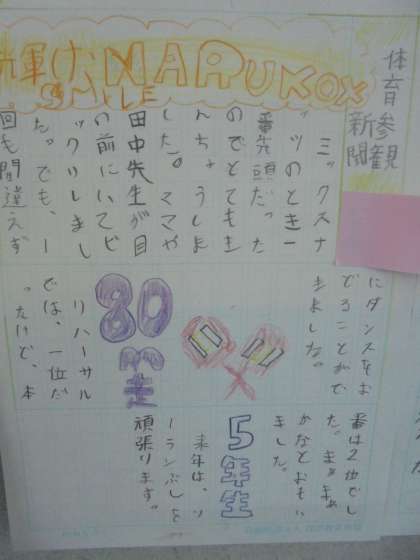 体育参観
新聞
輝け、NARUKOX
SMILE
ミックスナ
ッツのとき一
番先頭だった
のでとてもき
んちょうしま
した。ママや
田中先生が目
の前にいてビ
ックリしまし
た。でも、一
回も間違えず
にダンスをお
どることがで
きました。
80m走
リハーサル
では、一位だ
ったけど、本
番は2位でし
た。まぁまぁ
かなとおもい
ました。
5年生
来年は、ソ
ーランぶしを
頑張ります。